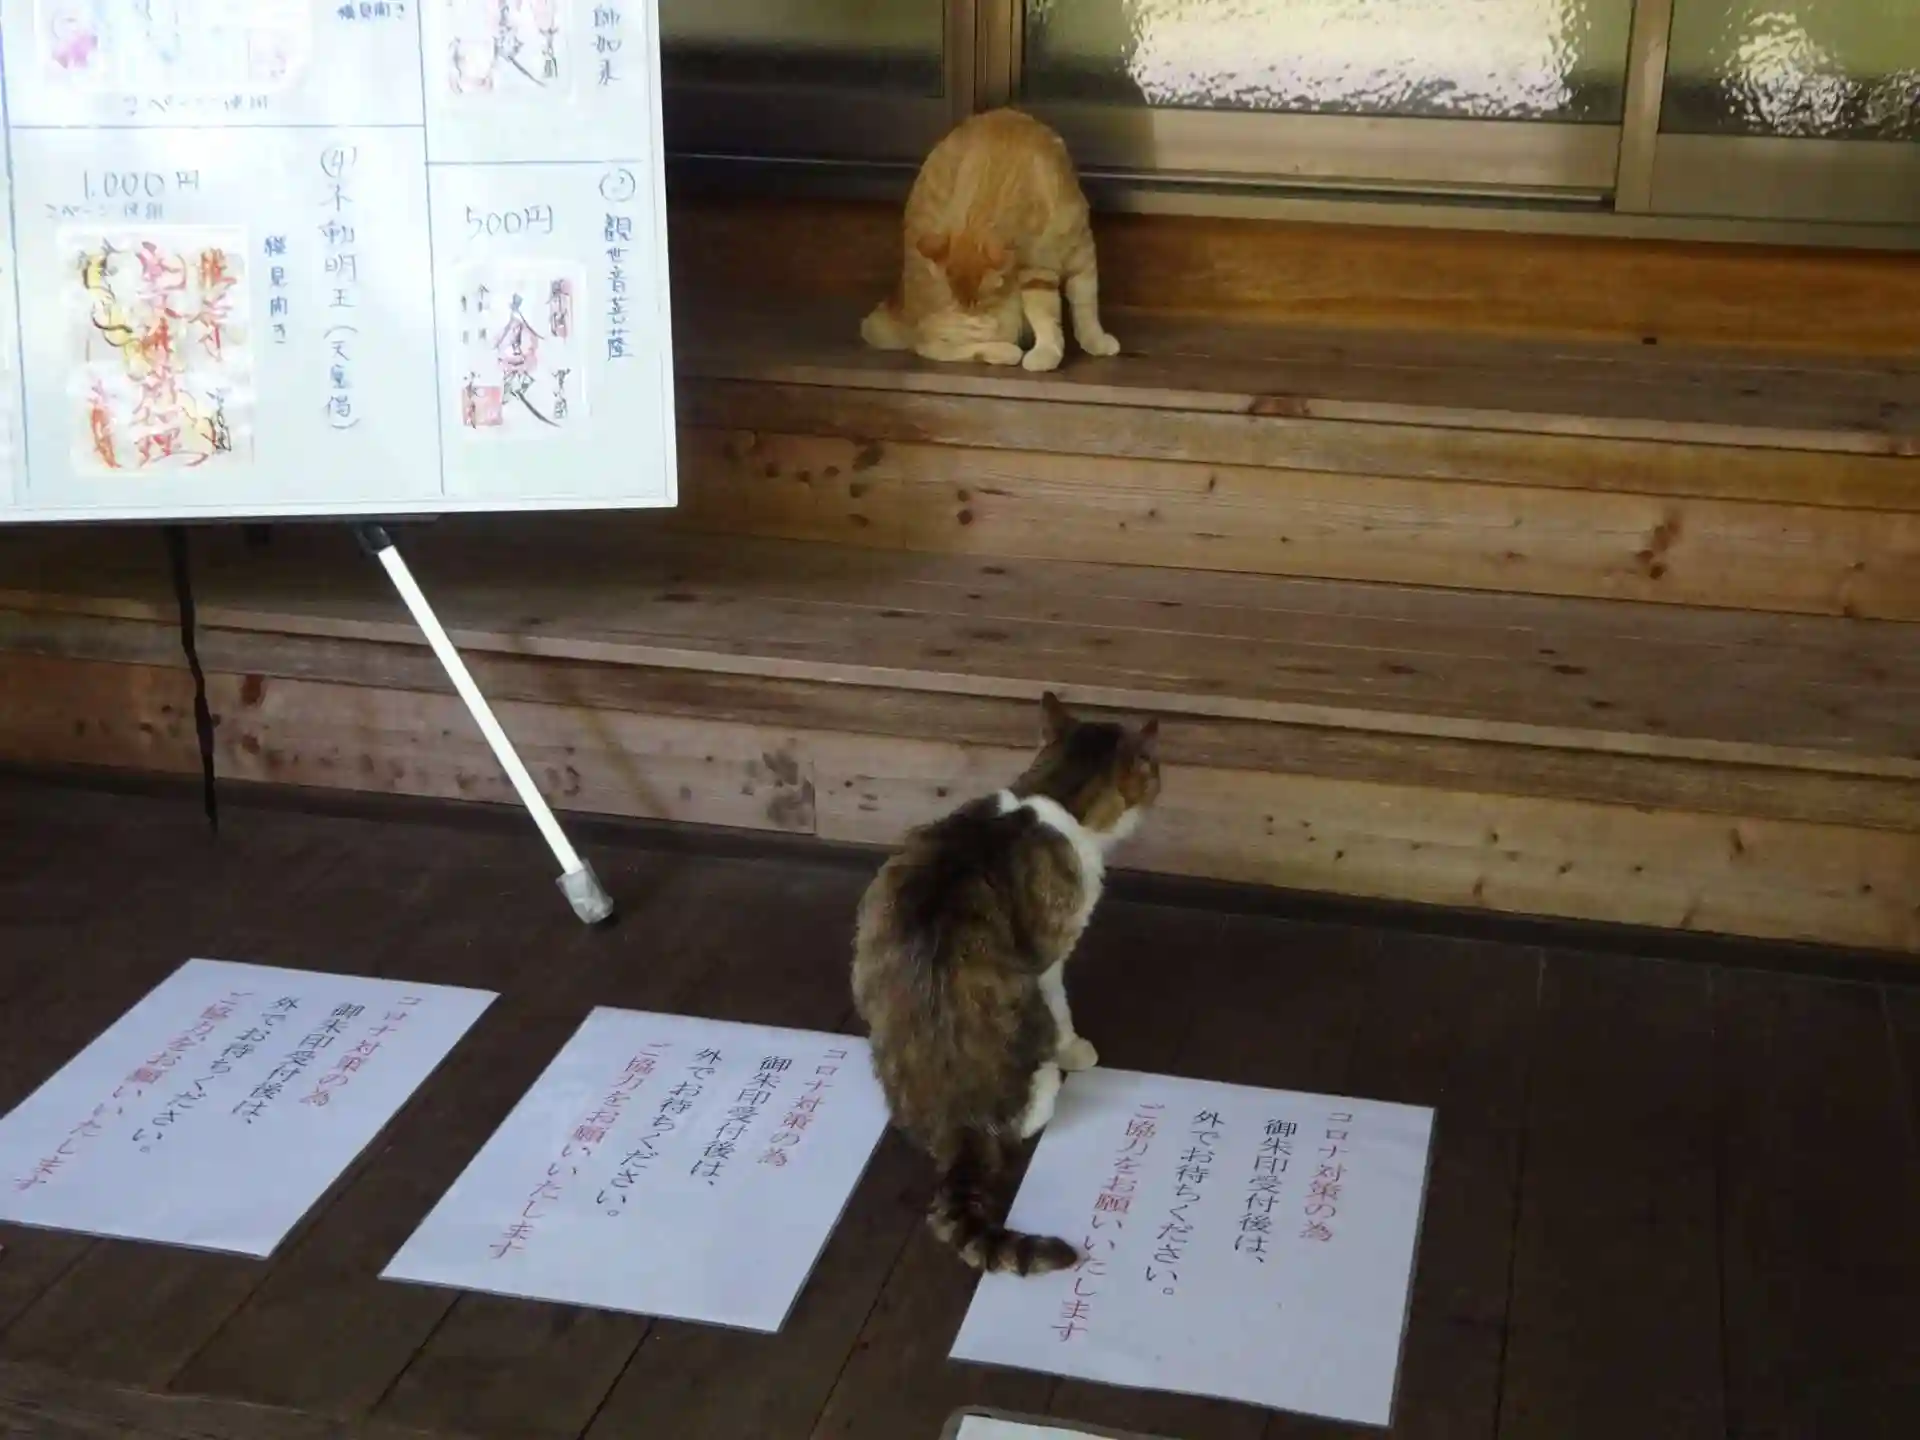 師如来
②観世音菩薩
500円
④不動明王(天重偈)
縦見開き
1.000円
2ページ使用
横見開き
2ページ使用
コロナ対策の為
御朱印受付後は、
外でお待ちください。
ご協力をお願いいたします
コロナ対策の為
御朱印受付後は、
外でお待ちください。
ご協力をお願いいたします
コロナ対策の為
御朱印受付後は、
外でお待ちください。
ご協力をお願いいたします